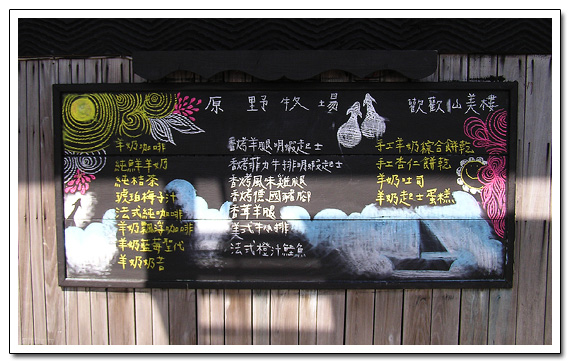 原野牧場
歡歡仙美樓
羊奶咖啡
純鮮羊奶
純桔茶
琥珀梅子汁
法式純咖啡
羊奶飄浮咖啡
羊奶藍莓聖代
羊奶奶昔
烤羊腿明蝦起士
香烤菲力牛排明蝦起士
香烤風味雞腿
香烤德國豬腳
香草羊腿
美式牛小排
法式橙汁鱈魚
手工羊奶綜合餅乾
手工杏仁餅乾
羊奶吐司
羊奶起士蛋糕